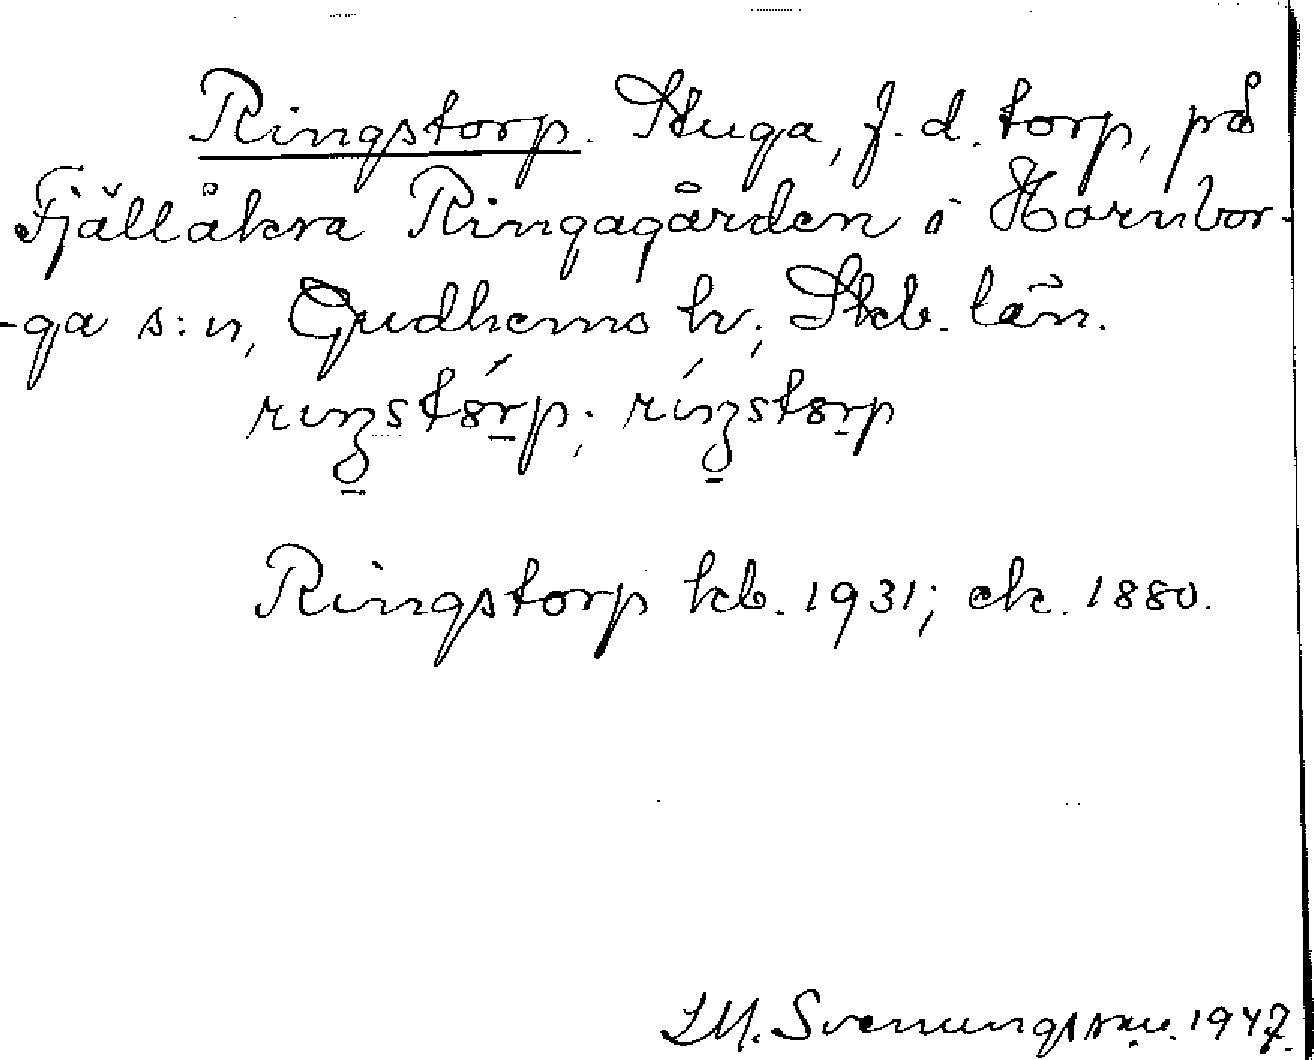 Ringstorp. Stuga, f. d. torp, på
Fjällåkra Ringagården i Hornbor-
-ga s:n, Gudhems hr; Skb. län.
Ringstorp kb. 1931; ek. 1880.
Svenungsson. 1947.